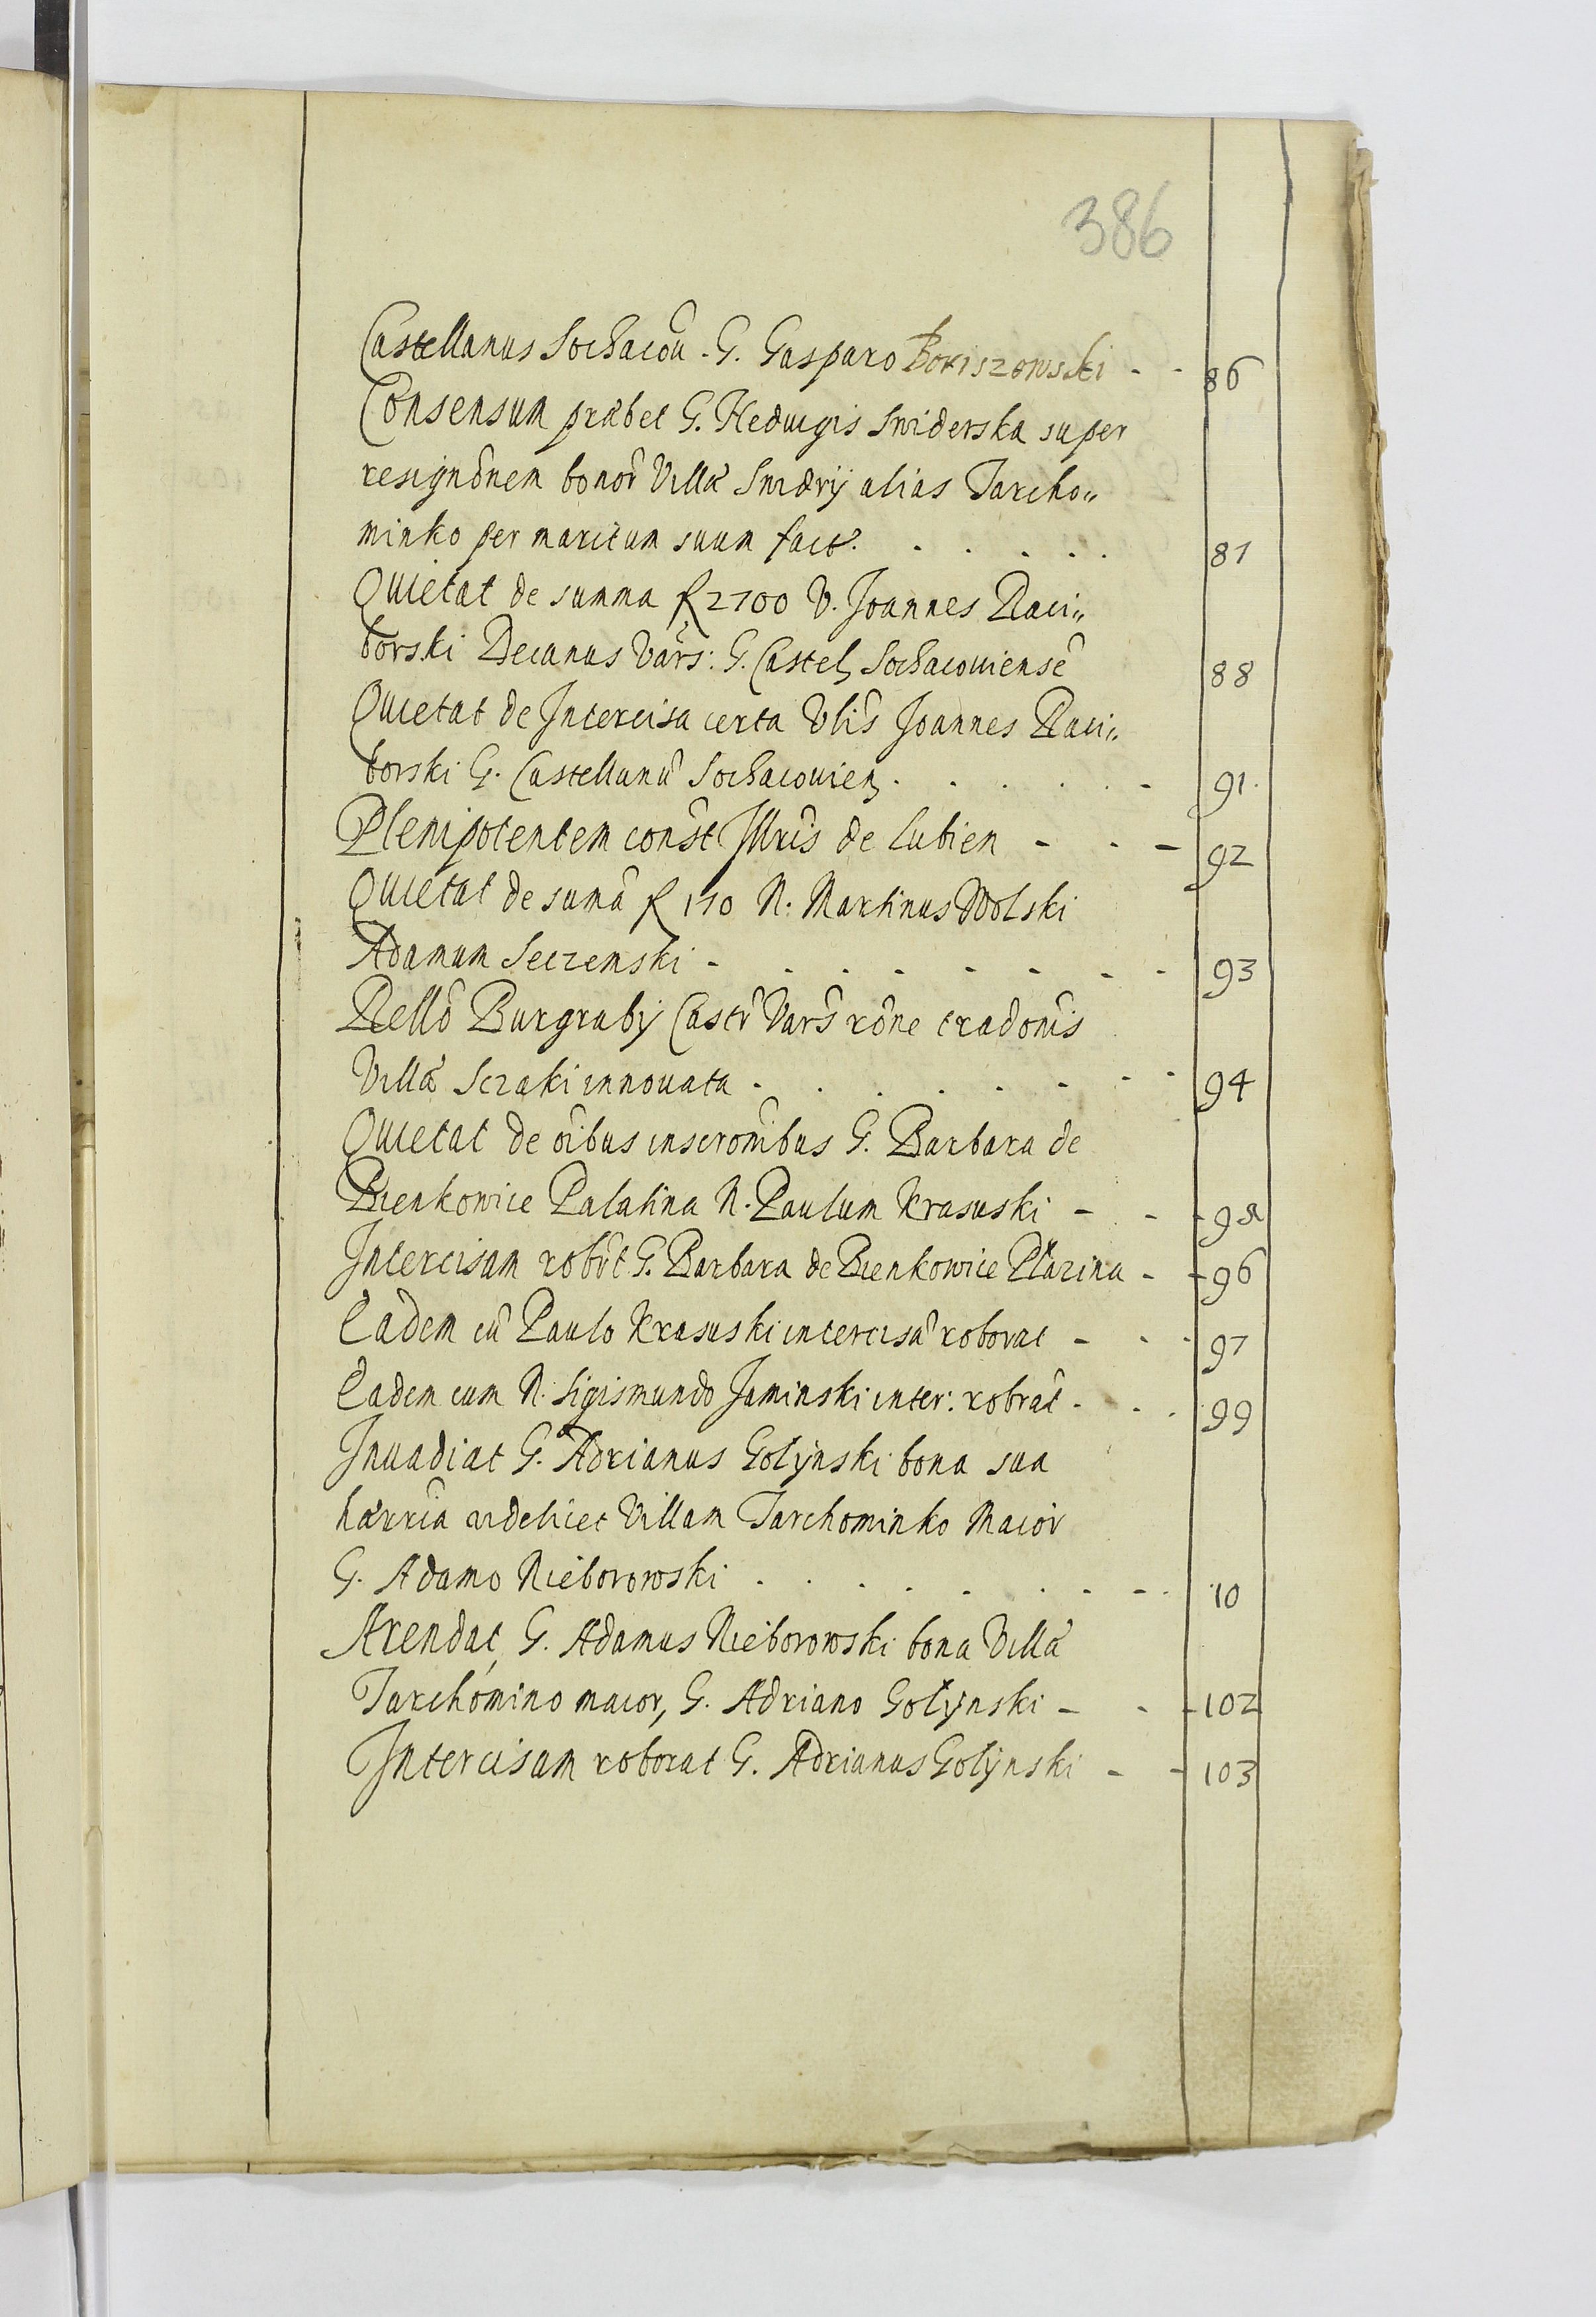 386
Castellanus Sochacoũ. G. Gasparo Boriszowski - - 86
Consensum præbet G. Heduigis Swiderska super
resignõnem bonoȓ Villæ Swidrÿ alias Tarcho„
minko per maritum suum fact. . . . . . 87
Quietat de summa f 2700 V. Joannes Raci„
borski Decanus Vars: G. Castel, Sochacouiensẽ 88
Quietat de Intercisa certa Vlis Joannes Raci„
borski G. Castellanũ Sochacouien, . . . . . - 91.
Plenipotentem const Illris de Lubien - - - 92
Quietat de sumã f 170 N. Martinus Wolski
Adamum Seczemski - . - . - - - - - 93
Rellõ Burgrabÿ Castr̃ Vars̃ rõne tradonis
Villæ Sczaki innouata - . . . - - - - 94
Quietat de oĩbus inscronibus G. Barbara de
Bienkowice Palatina N. Paulum Krasuski - - - 95
Intercisam robrt G. Barbara de Bienkowice Plazina - - 96
Eadem cũ Paulo Krasuski intercisã roborat - - - 97
Eadem cum N. Sigismundo Jaminski inter: robrat - - - 99
Inuadiat G. Adrianus Golÿnski bona sua
hærria uidelicet Villam Tarchominko Maior
G. Adamo Nieborowski . . . . . . - - . 10
Arendat G. Adamus Nieborowski bona Villæ
Tarchomino maior, G. Adriano Golÿnski - - - 102
Intercisam roborat G. Adrianus Golÿnski - - 103